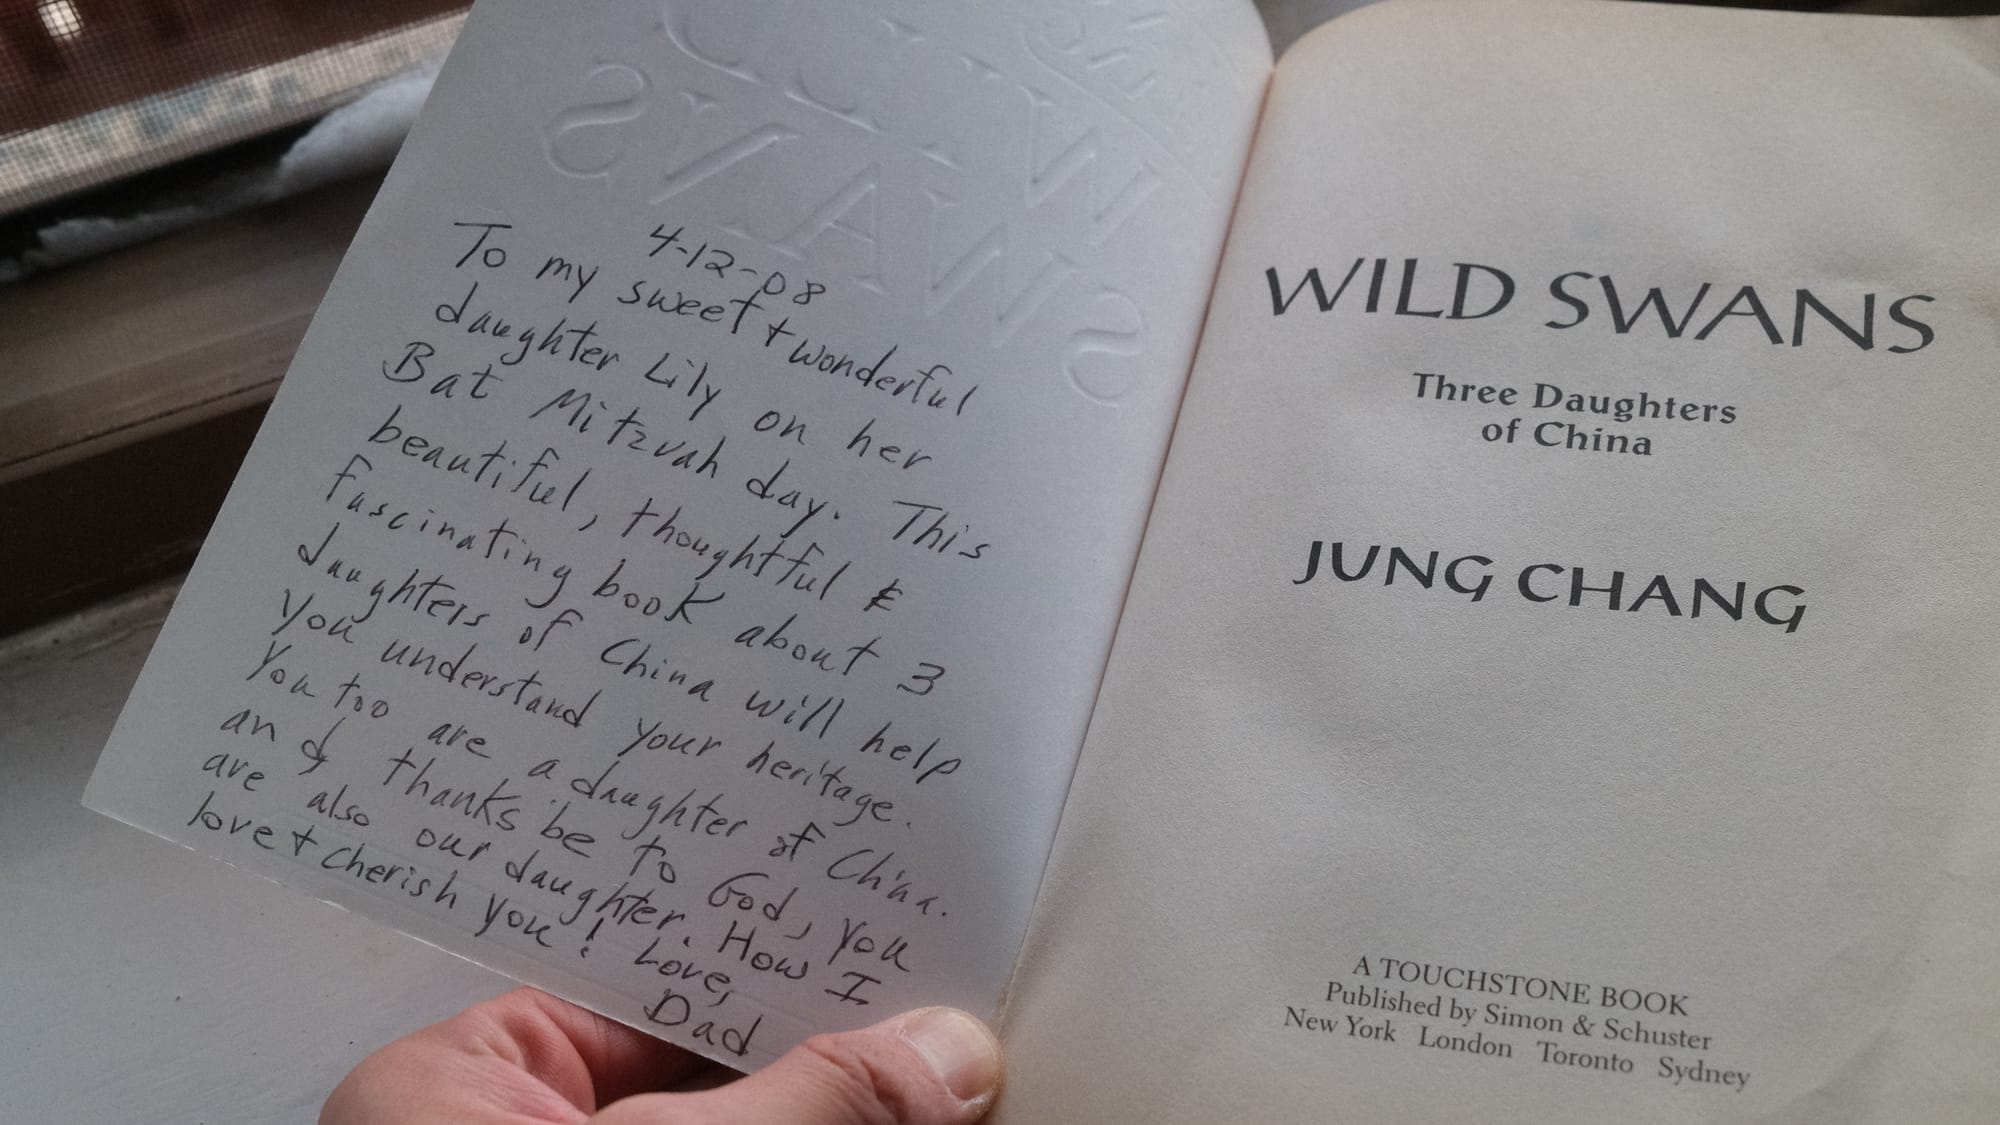 4-12-08
To my sweet + wonderful
daughter Lily on her
Bat Mitzvah day. This
beautiful, thoughtful &
fascinating book about 3
daughters of China will help
you understand your heritage.
You too are a daughter of China.
and thanks be to God, you
are also our daughter. How I
love + cherish you! Love,
Dad
WILD SWANS
Three Daughters
of China
JUNG CHANG
A TOUCHSTONE BOOK
Published by Simon & Schuster
New York London Toronto Sydney